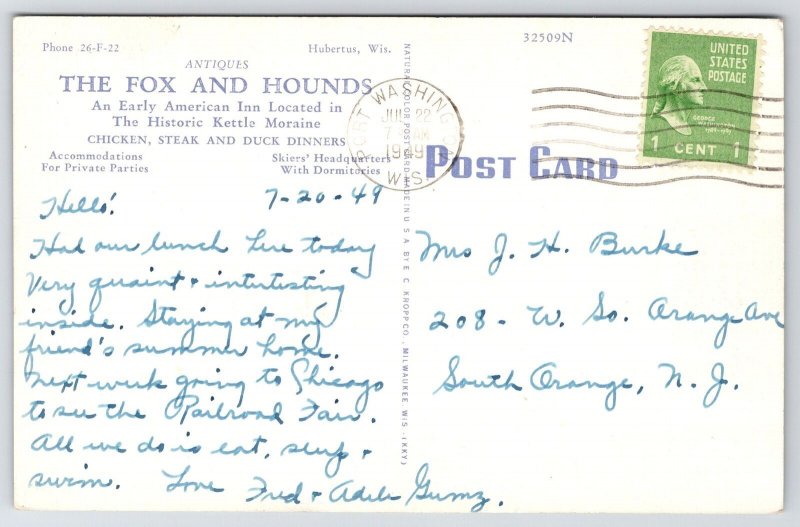 Phone 26-F-22
Hubertus, Wis.
ANTIQUES
THE FOX AND HOUNDS
An Early American Inn Located in
The Historic Kettle Moraine
CHICKEN, STEAK AND DUCK DINNERS
Accommodations
For Private Parties
Skiers' Headquarters
With Dormitories
7-20-49
Hello!
Had our lunch here today
Very quaint + intertesting
inside. Staying at my
friend's summer home.
Next week going to Chicago
to see the Railroad Fair.
All we do is eat, sleep +
swim. Love Fred + Adele Gumz.
NATURAL COLOR POST CARD MADE IN U S A BY E. C. KROPP CO., MILWAUKEE, WIS. (KKY)
32509N
PORT WASHINGTON
JUL 22
1949
WIS.
UNITED
STATES
POSTAGE
GEORGE
WASHINGTON
1 CENT 1
POST CARD
Mrs J. H. Burke
208 - W. So. Orange Ave
South Orange, N. J.